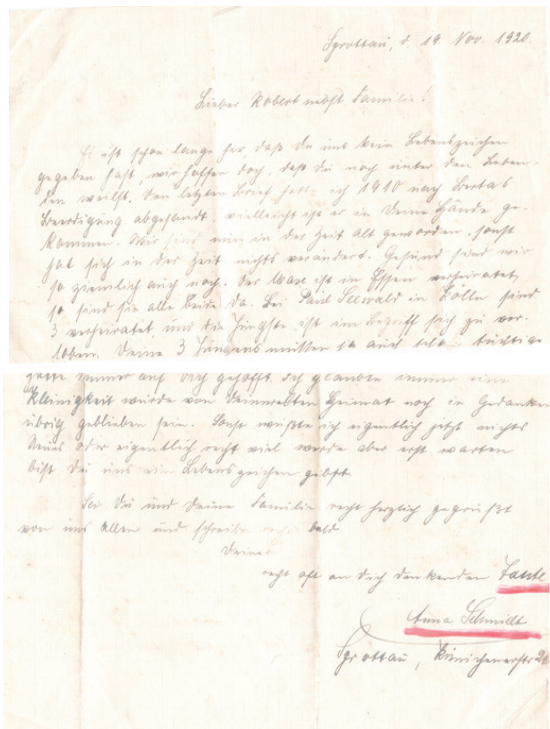 Sprottau, d. 19. Nov. 1920.
Lieber Robert nebst Familie!
Es ist schon lange her, daß Du uns kein Lebenszeichen
gegeben hast, wir hoffen doch, daß Du noch unter den Leben-
den weilst. Den letzten Brief hatte ich 1910 nach Bertas
Beerdigung abgesandt vielleicht ist er in Deine Hände ge-
kommen. Wir sind nun in der Zeit alt geworden, sonst
hat sich in der Zeit nichts verändert. Gesund sind wir
so ziemlich auch noch. Der Max ist in Essen verheiratet,
so sind sie alle beide da. Bei Paul Seewald in Kölln sind
3 verheiratet und die Jüngste ist im Begriff sich zu ver-
loben. Deine 3 Jungens müssen ja auch schon tüchtige
hatte immer auf Dich gehofft. Ich glaubte immer eine
Kleinigkeit würde von Deiner alten Heimat noch in Gedanken
übrig geblieben sein. Sonst wüßte ich eigentlich jetzt nichts
Neues oder eigentlich recht viel werde aber erst warten
bist Du uns ein Lebenszeichen gibst
Sei Du und Deine Familie recht herzlich gegrüßt
von uns Allen und schreibe recht bald
Deiner
recht oft an Dich denkenden Tante
Anna Schmidt
Sprottau,